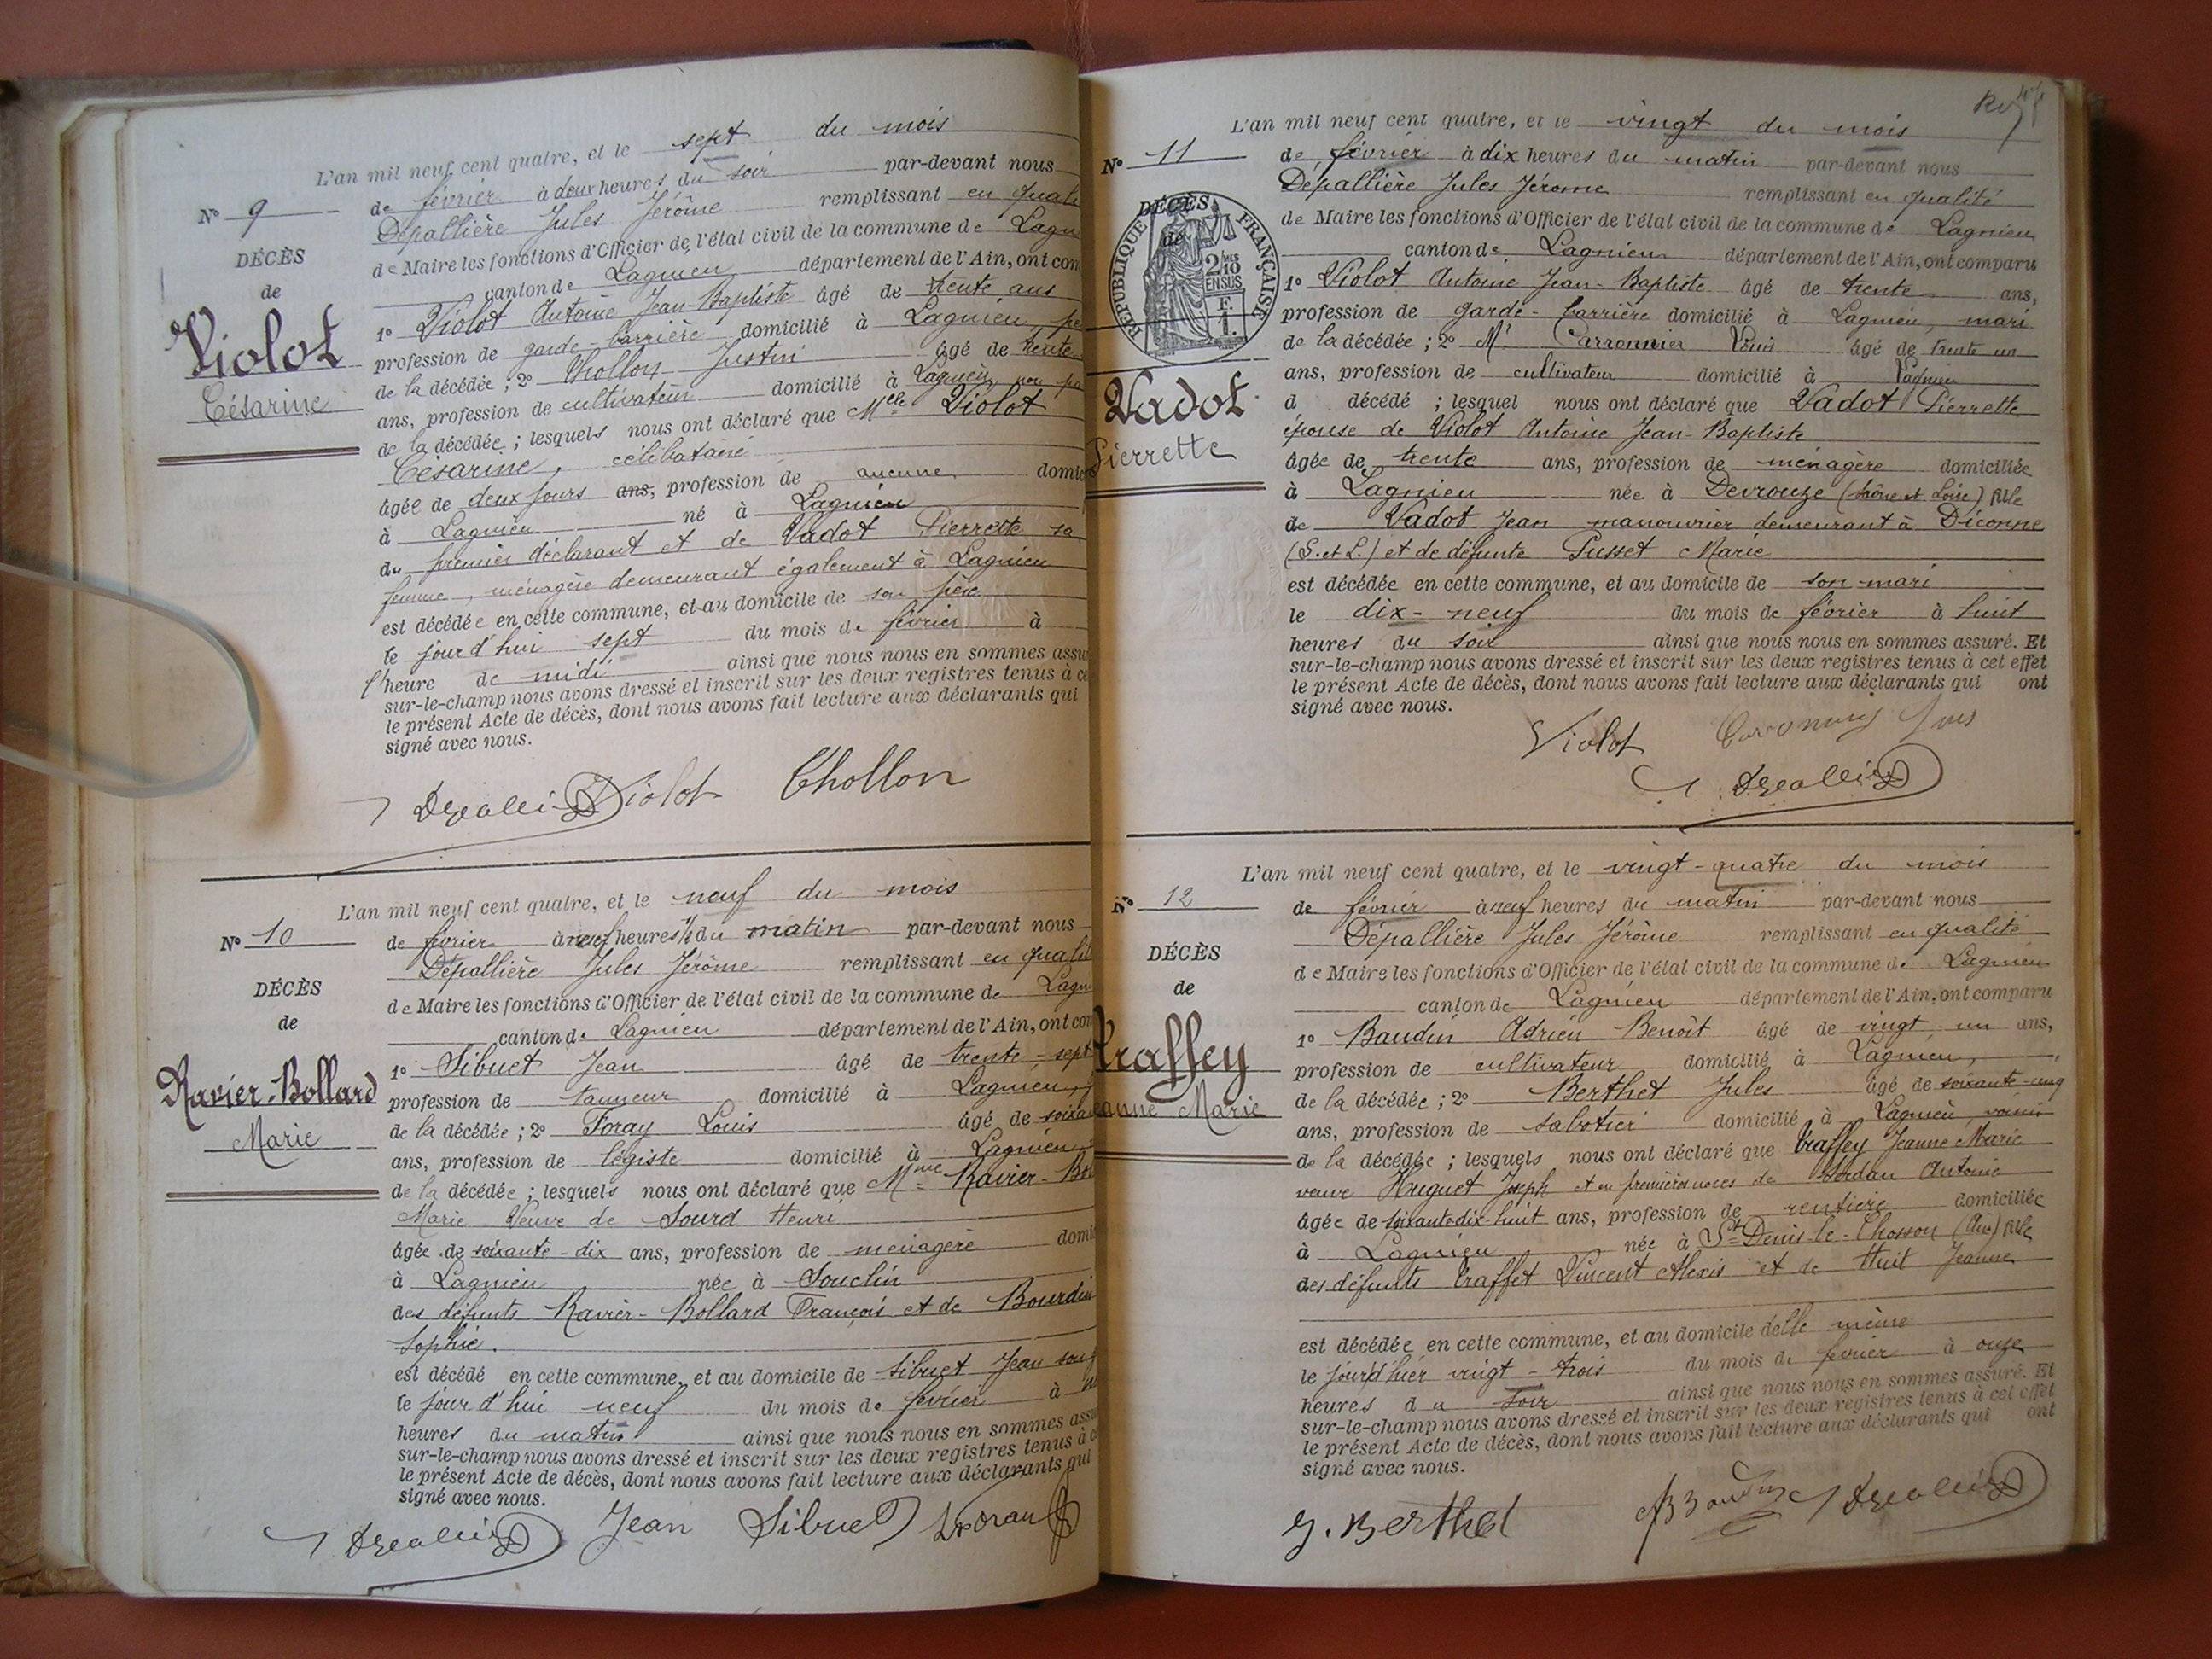 L'an mil neuf cent quatre, et le sept du mois
N° 9
de février à deux heures du soir par-devant nous
Dépallière Jules Jérôme remplissant en quali
DÉCÈS
de Maire les fonctions d'Officier de l'état civil de la commune de Lagn
de
canton de Lagnieu département de l'Ain, ont com
Violot
Césarine
1° Violot Antoine Jean-Baptiste âgé de trente ans
profession de garde-barrière domicilié à Lagnieu, pè
de la décédée ; 2° Chollon Justin âgé de trente
ans, profession de cultivateur domicilié à Lagnieu, non pa
de la décédée ; lesquels nous ont déclaré que Melle Violot
Césarine, célibataire
âgée de deux jours ans, profession de aucune domic
à Lagnieu né à Lagnieu
du premier déclarant et de Vadot Pierrette sa
femme, ménagère demeurant également à Lagnieu
est décédée en cette commune, et au domicile de son père
le jour d'hui sept du mois de février à
l'heure de midi ainsi que nous nous en sommes assu
sur-le-champ nous avons dressé et inscrit sur les deux registres tenus à ce
le présent Acte de décès, dont nous avons fait lecture aux déclarants qui
signé avec nous.
Depallière Violot Chollon
L'an mil neuf cent quatre, et le neuf du mois
N° 10
de février à neuf heures ½ du matin par-devant nous
Dépallière Jules Jérôme remplissant en qualit
DÉCÈS
de Maire les fonctions d'Officier de l'état civil de la commune de Lagn
de
canton de Lagnieu département de l'Ain, ont com
Ravier-Bollard
Marie
1° Sibuet Jean âgé de trente-sept
profession de tanneur domicilié à Lagnieu,
de la décédée ; 2° Foray Louis âgé de soixa
ans, profession de légiste domicilié à Lagnieu
de la décédée ; lesquels nous ont déclaré que Mme Ravier-Bo
Marie Veuve de Sourd Henri
âgée de soixante-dix ans, profession de ménagère domi
à Lagnieu née à Souclin
des défunts Ravier-Bollard François et de Bourdin
Sophie.
est décédé en cette commune, et au domicile de Sibuet Jean son
le jour d'hui neuf du mois de février à
heures du matin ainsi que nous nous en sommes assu
sur-le-champ nous avons dressé et inscrit sur les deux registres tenus à c
le présent Acte de décès, dont nous avons fait lecture aux déclarants qui
signé avec nous.
Depallière Jean Sibuet L. Foray
L'an mil neuf cent quatre, et le vingt du mois
N° 11
de février à dix heures du matin par-devant nous
Dépallière Jules Jérome remplissant en qualité
DÉCÈS
de
RÉPUBLIQUE FRANÇAISE
2/10 EN SUS
F. 1.
de Maire les fonctions d'Officier de l'état civil de la commune de Lagnieu
canton de Lagnieu département de l'Ain, ont comparu
Vadot
Pierrette
1° Violot Antoine Jean-Baptiste âgé de trente ans,
profession de garde-barrière domicilié à Lagnieu, mari
de la décédée ; 2° Mr Carronnier Louis âgé de trente un
ans, profession de cultivateur domicilié à Lagnieu
d décédé ; lesquel nous ont déclaré que Vadot Pierrette
épouse de Violot Antoine Jean-Baptiste
âgée de trente ans, profession de ménagère domiciliée
à Lagnieu née à Devrouze (Saône et Loire) fille
de Vadot Jean manouvrier demeurant à Diconne
(S. et L.) et de défunte Pusset Marie
est décédée en cette commune, et au domicile de son mari
le dix-neuf du mois de février à huit
heures du soir ainsi que nous nous en sommes assuré. Et
sur-le-champ nous avons dressé et inscrit sur les deux registres tenus à cet effet
le présent Acte de décès, dont nous avons fait lecture aux déclarants qui ont
signé avec nous.
Violot
Depallière
L'an mil neuf cent quatre, et le vingt-quatre du mois
N° 12
de février à neuf heures du matin par-devant nous
Dépallière Jules Jérôme remplissant en qualité
DÉCÈS
de Maire les fonctions d'Officier de l'état civil de la commune de Lagnieu
de
canton de Lagnieu département de l'Ain, ont comparu
Traffey
eanne Marie
1° Baudin Adrien Benoît âgé de vingt-un ans,
profession de cultivateur domicilié à Lagnieu,
de la décédée ; 2° Berthet Jules âgé de soixante-cinq
ans, profession de sabotier domicilié à Lagnieu, voisin
de la décédée ; lesquels nous ont déclaré que Traffey Jeanne Marie
veuve Huguet Joseph et en premières noces de Jordan Antoine
âgée de soixante dix-huit ans, profession de rentière domiciliée
à Lagnieu née à St Denis-le-Chosson (Ain) fille
des défunts Traffet Vincent Alexis et de Huit Jeanne
est décédée en cette commune, et au domicile d'elle même
le jour d'hier vingt-trois du mois de février à onze
heures du soir ainsi que nous nous en sommes assuré. Et
sur-le-champ nous avons dressé et inscrit sur les deux registres tenus à cet effet
le présent Acte de décès, dont nous avons fait lecture aux déclarants qui ont
signé avec nous.
J. Berthet AB Baudin Depallière